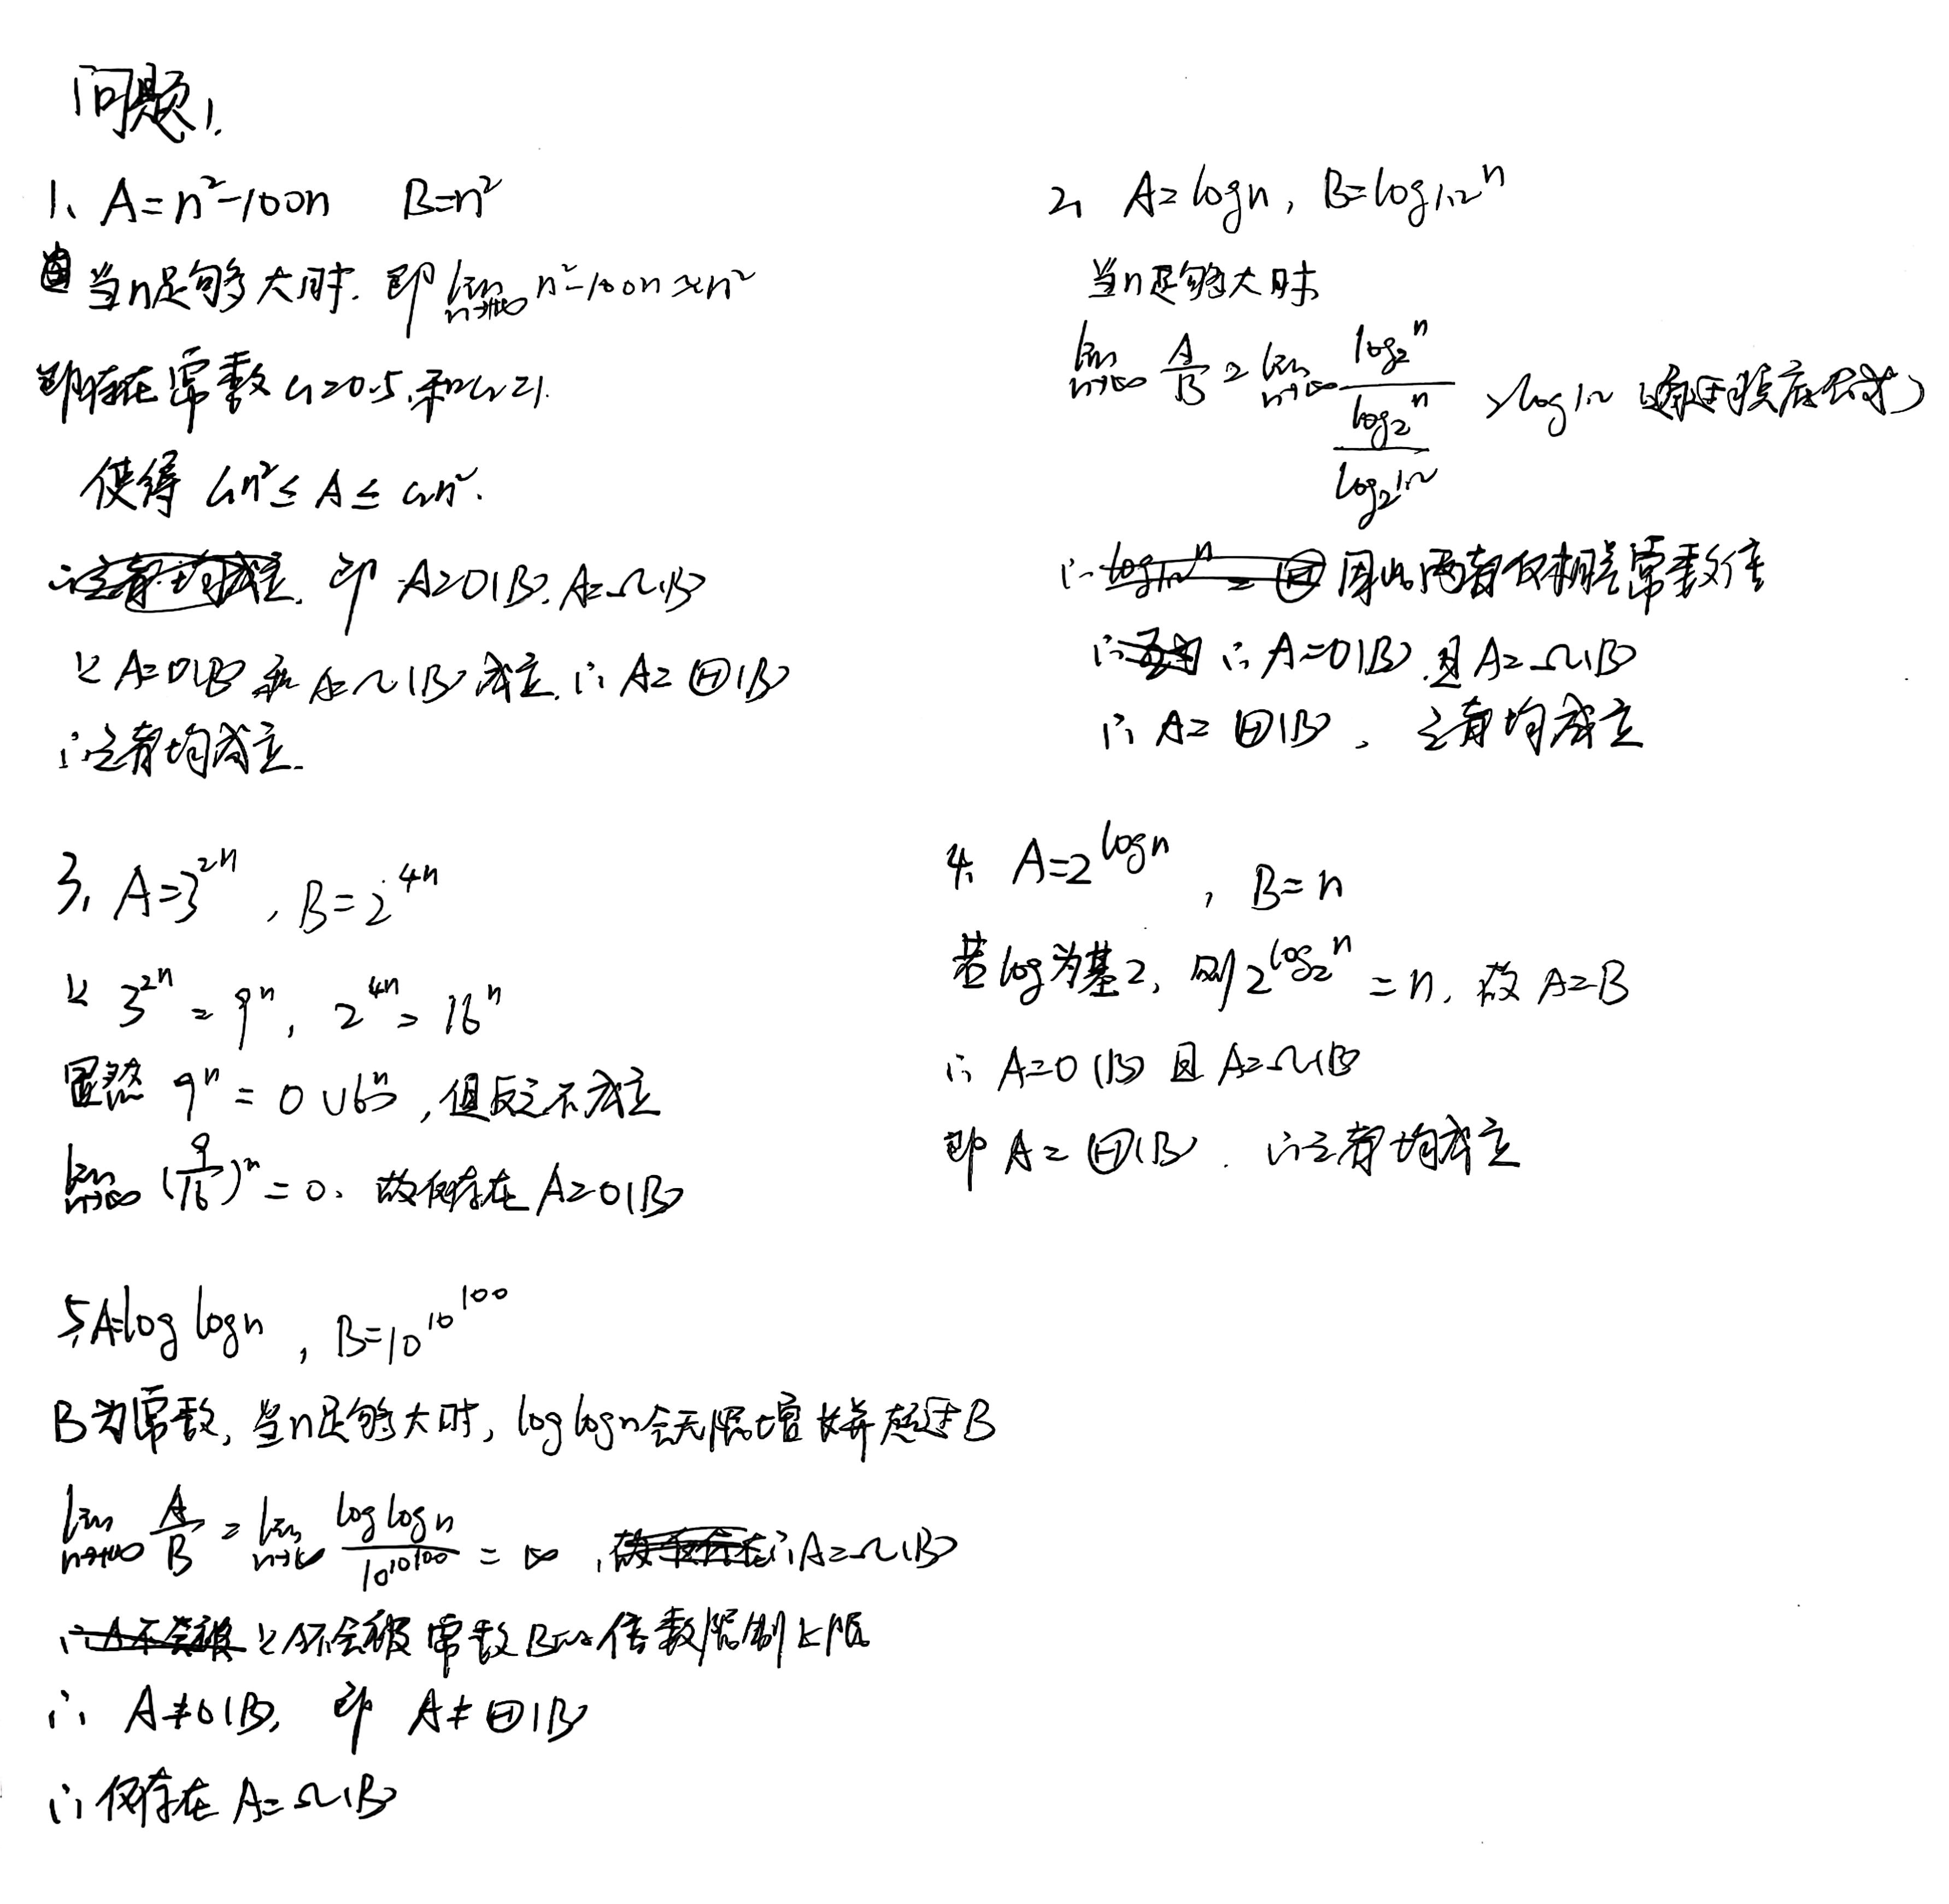 问题1.
1、A=n²-100n B=n²
当n足够大时. 即 lim n→+∞ n²-100n≈n²
即存在常数 c₁=0.5, 和c₂=1.
使得 c₁n² ≤ A ≤ c₂n².
即 A=O(B), A=Ω(B)
∵ A=O(B) 和 A=Ω(B) 成立. ∴ A=Θ(B)
∴三者均成立.
2、A=logn, B=log1.2 n
当n足够大时
lim n→∞ A/B = lim n→∞ log₂n / (log₂n / log₂1.2) = log1.2 (换底公式)
∴ 因此两者仅相差常数倍
∴ A=O(B) 且 A=Ω(B)
∴ A=Θ(B), 三者均成立
3、A=3^2n, B=2^4n
∵ 3^2n = 9^n, 2^4n = 16^n
显然 9^n = O(16^n), 但反之不成立
lim n→∞ (9/16)^n = 0. 故仅存在 A=O(B)
4、A=2^logn, B=n
若log为基2, 则 2^log₂n = n, 故 A=B
∴ A=O(B) 且 A=Ω(B)
即 A=Θ(B). ∴三者均成立
5、A=log logn, B=10^10^100
B为常数, 当n足够大时, log logn会无限增长并超过B
lim n→+∞ A/B = lim n→∞ log logn / 10^10^100 = ∞, ∴A=Ω(B)
∵A不会被常数B的倍数限制上限
∴ A≠O(B), 即 A≠Θ(B)
∴ 仅存在 A=Ω(B)